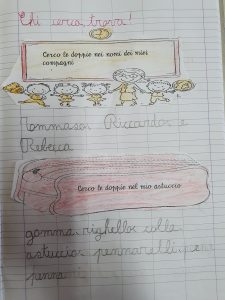 Chi cerca, trova!
Cerco le doppie nei nomi dei miei
compagni
Tommaso Riccardo e
Rebecca
Cerco le doppie nel mio astuccio
gomma righello colla
astuccio pennarelli
penna